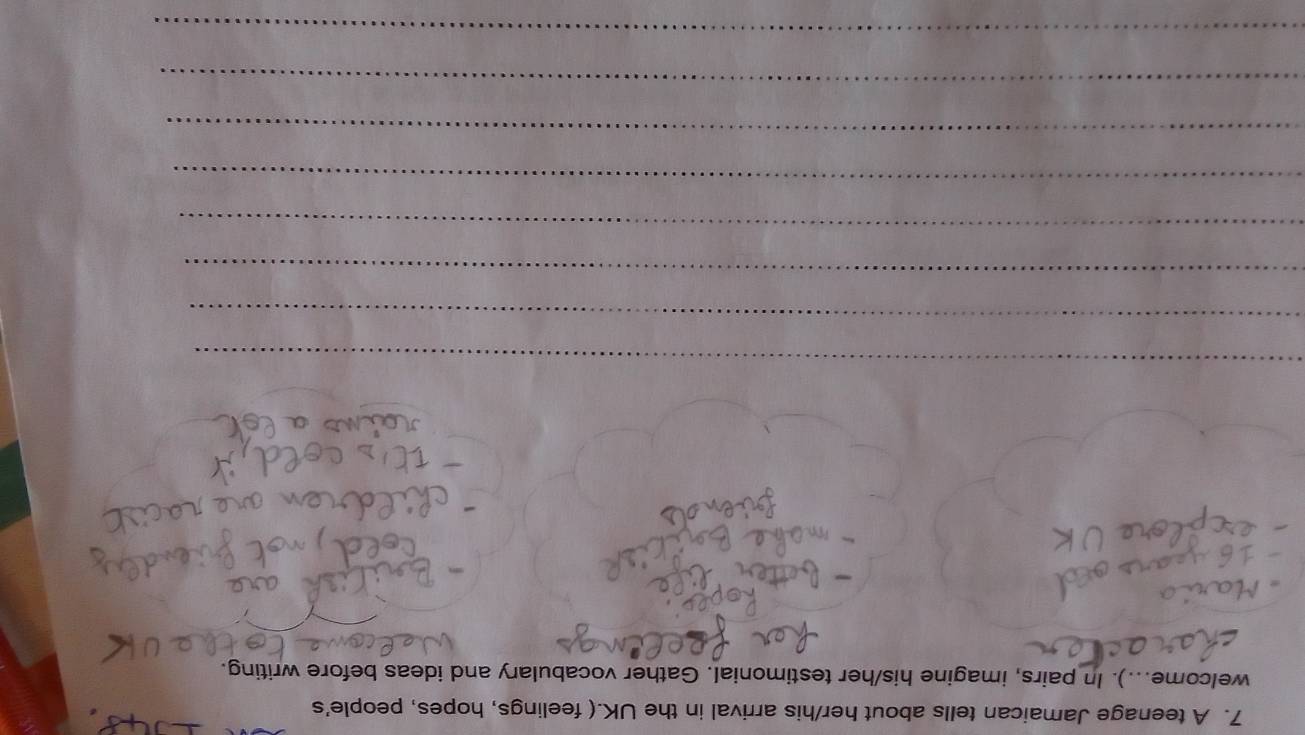 1948.
7. A teenage Jamaican tells about her/his arrival in the UK.( feelings, hopes, people's
welcome...). In pairs, imagine his/her testimonial. Gather vocabulary and ideas before writing.
character
- Maria
- 16 years old
- explore UK
her feelings
hopes
- better life
- make British
friends
Welcome to the UK
- British are
cold, not friendly
- children are racist
- It's cold, it
rains a lot